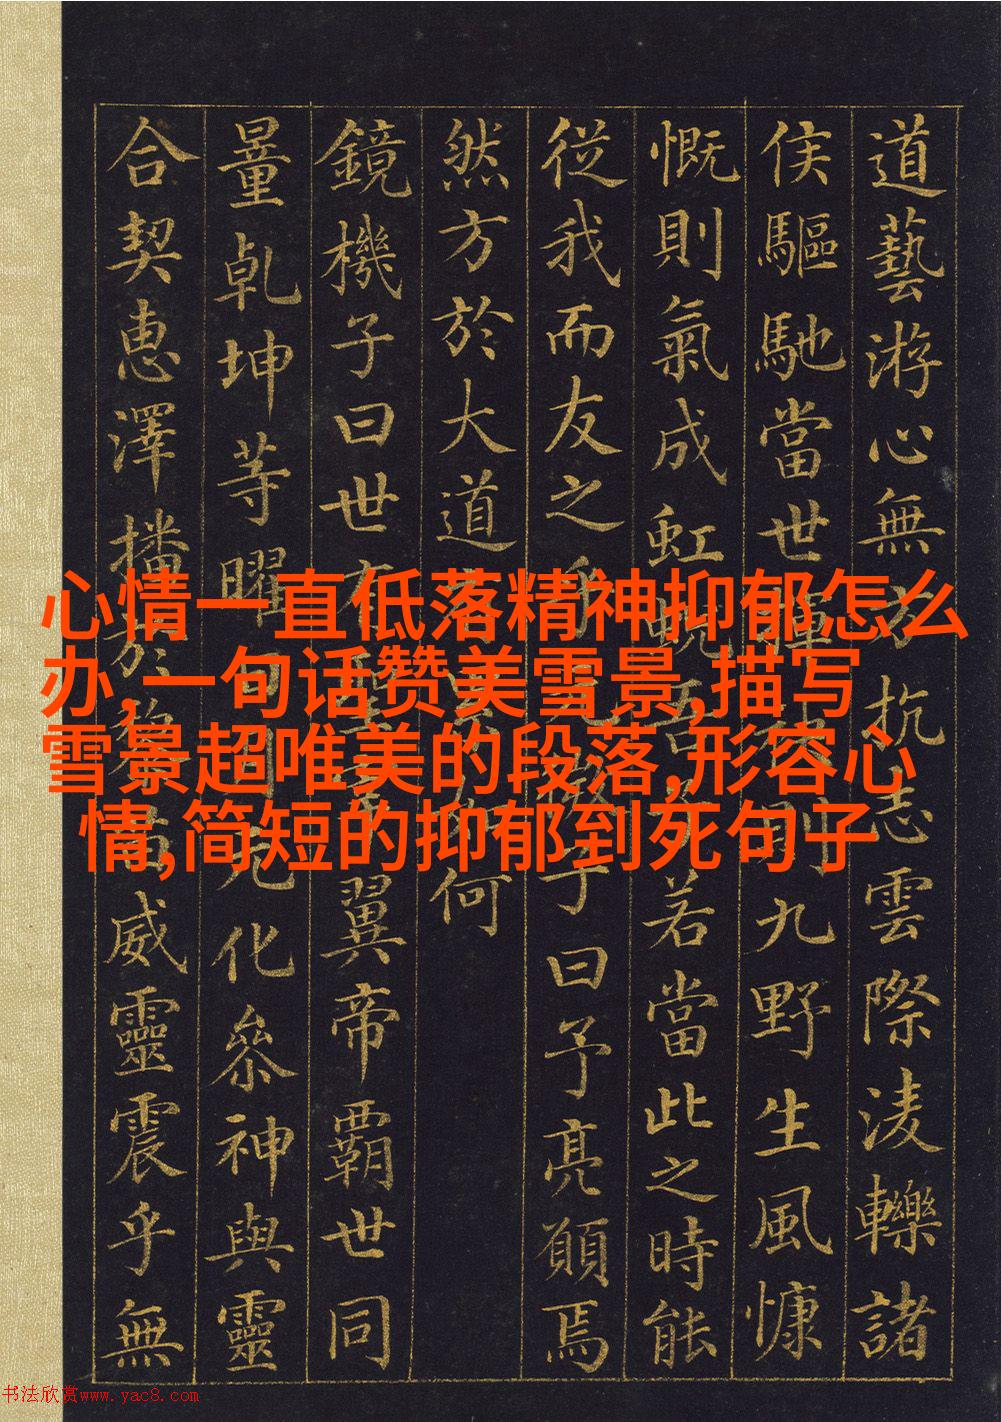 心情一直低落精神抑郁怎么
办,一句话赞美雪景,描写
雪景超唯美的段落,形容心
情,简短的抑郁到死句子
道藝游心無方抗志雲際淩轢諸
侯驅馳當世揮則九野生風慷
慨則氣成虹蜺吾若當此之時能
從我而友之乎子曰予亮願焉
然方於大道何
鏡機子曰世有翼帝霸世同
量乾坤等曜日月化參神與靈
合契惠澤播於黎苗威靈震乎無
书法欣赏www.yac8.com